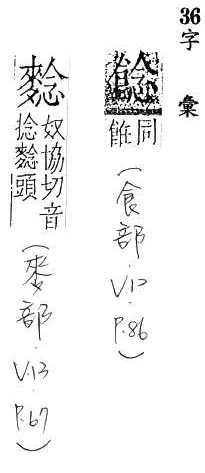 36
字彙
同
(食部.V12.P.86)
奴協切音
捻
頭
(麥部.V.13.P.67)